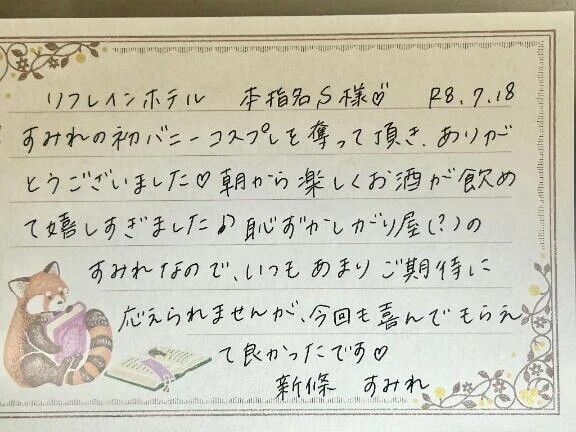 リフレインホテル 本指名S様♡ R8.7.18
すみれの初バニーコスプレを奪って頂き、ありが
とうございました♡朝から楽しくお酒が飲め
て嬉しすぎました♪恥ずかしがり屋(?)の
すみれなので、いつもあまりご期待に
応えられませんが、今回も喜んでもらえ
て良かったです♡
新條 すみれ